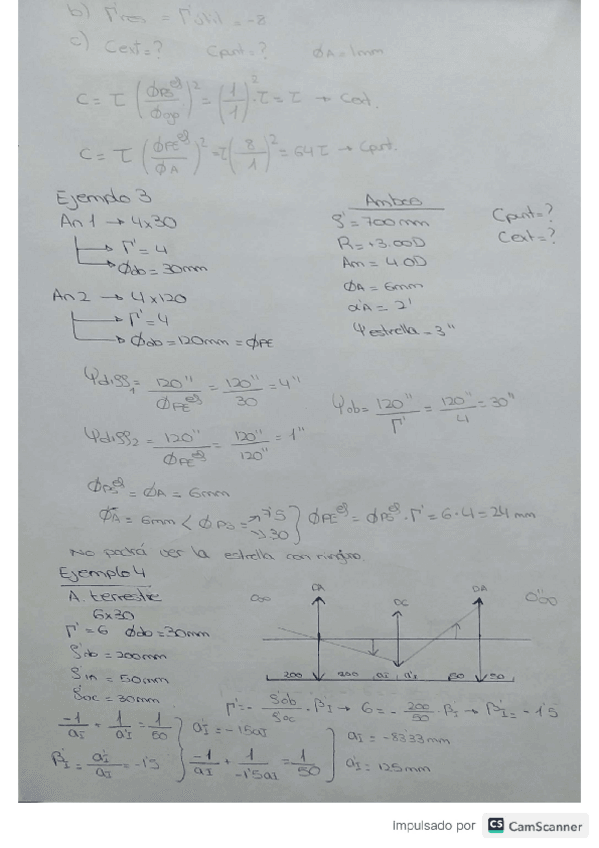 b) Γ'res = Γ'útil = -8
c) Cext=? Cpunt=? ϕA=1mm
C = τ (ϕPS^ef / ϕojo)² = (1/1)²·τ = τ → Cext.
C = τ (ϕPE^ef / ϕA)² = τ(8/1)² = 64τ → Cpunt.
Ejemplo 3
An1 → 4x30
→ Γ' = 4
→ ϕob = 30mm
An2 → 4x120
→ Γ' = 4
→ ϕob = 120mm = ϕPE
Ambos
f' = 700mm
R = +3.00D
Am = 4.0D
ϕA = 6mm
α'A = 2'
Ψestrella = 3"
Cpunt=?
Cext=?
Ψdiff1 = 120" / ϕPE^ef = 120" / 30 = 4"
Ψob = 120" / Γ' = 120" / 4 = 30"
Ψdiff2 = 120" / ϕPE^ef = 120" / 120" = 1"
ϕPS^ef = ϕA = 6mm
ϕA = 6mm < ϕPS = → 7'5 → 30 } ϕPE^ef = ϕPS^ef · Γ' = 6·4 = 24 mm
No podrá ver la estrella con ninguno.
Ejemplo 4
A. terrestre
6x30
Γ' = 6 ϕob = 30mm
f'ob = 200mm
f'in = 50mm
f'oc = 30mm
O∞ OA OC OA O'∞
200 200 aI a'I 50 50
Γ' = - f'ob / f'oc · β'I → 6 = - 200 / 50 · β'I → β'I = -1'5
-1/aI + 1/a'I = 1/50
β'I = a'I / aI = -1'5
a'I = -1'5aI
-1/aI + 1/-1'5aI = 1/50
aI = -83'33mm
a'I = 125mm
Impulsado por CS CamScanner